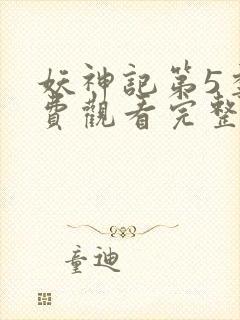 妖神記第5季
費觀看完整
童迪